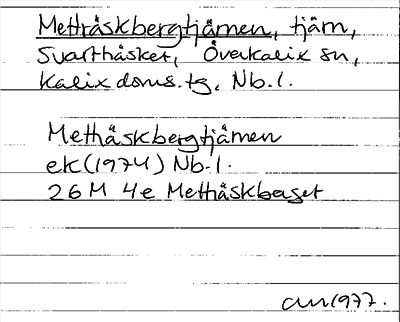 Mettråskbergtjärnen, tjärn,
Svartbåsket, Överkalix sn,
Kalix doms. tg, Nb. l.
Methåskbergtjärnen
ek (1974) Nb. l.
26 M 4e Methåskberget
1977.